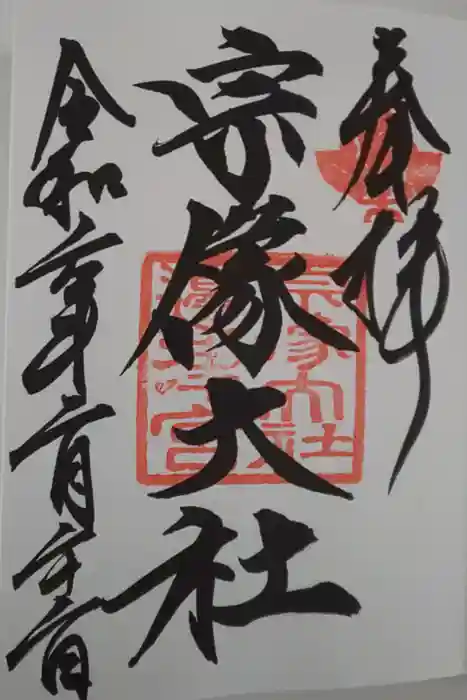 奉拝
宗像大社
宗像大社
邊津宮
令和